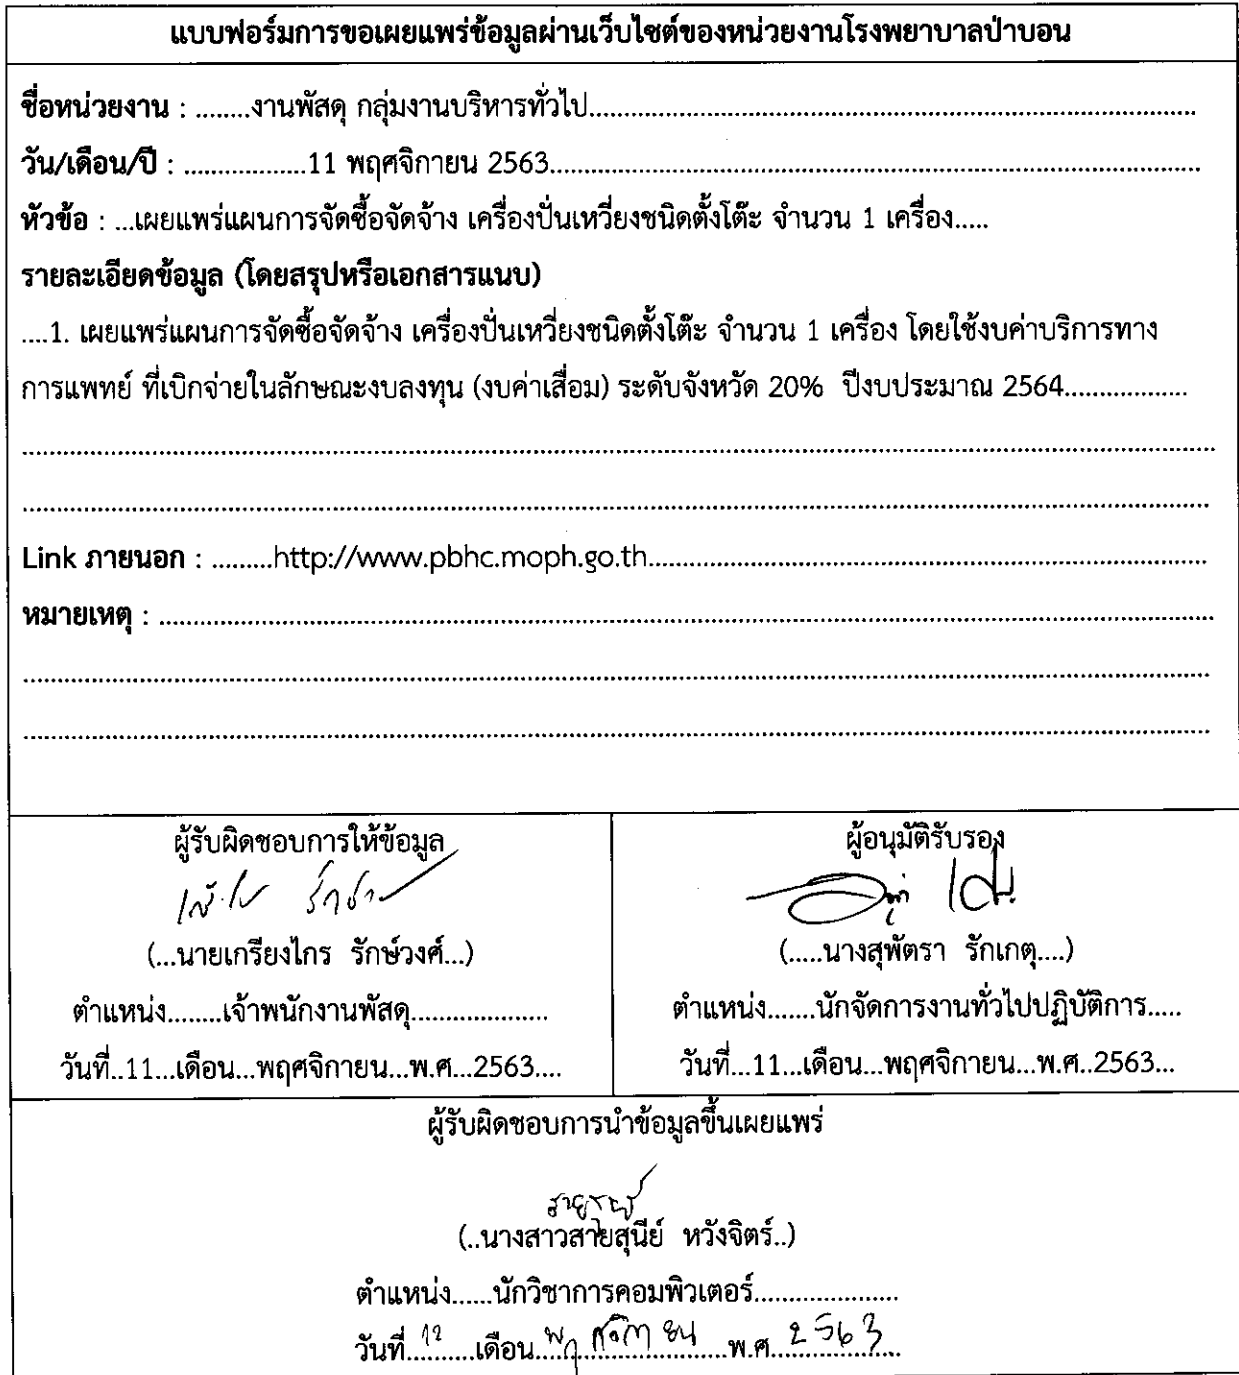 แบบฟอร์มการขอเผยแพร่ข้อมูลผ่านเว็บไซต์ของหน่วยงานโรงพยาบาลป่าบอน
ชื่อหน่วยงาน : ........งานพัสดุ กลุ่มงานบริหารทั่วไป..........
วัน/เดือน/ปี : ..................11 พฤศจิกายน 2563..........
หัวข้อ : ...เผยแพร่แผนการจัดซื้อจัดจ้าง เครื่องปั่นเหวี่ยงชนิดตั้งโต๊ะ จำนวน 1 เครื่อง.....
รายละเอียดข้อมูล (โดยสรุปหรือเอกสารแนบ)
....1. เผยแพร่แผนการจัดซื้อจัดจ้าง เครื่องปั่นเหวี่ยงชนิดตั้งโต๊ะ จำนวน 1 เครื่อง โดยใช้งบค่าบริการทาง
การแพทย์ ที่เบิกจ่ายในลักษณะงบลงทุน (งบค่าเสื่อม) ระดับจังหวัด 20% ปีงบประมาณ 2564..................
Link ภายนอก : .........http://www.pbhc.moph.go.th..........
หมายเหตุ : ..........
ผู้รับผิดชอบการให้ข้อมูล
(...นายเกรียงไกร รักษ์วงศ์...)
ตำแหน่ง........เจ้าพนักงานพัสดุ....................
วันที่..11...เดือน...พฤศจิกายน...พ.ศ...2563....
ผู้อนุมัติรับรอง
(.....นางสุพัตรา รักเกตุ....)
ตำแหน่ง.......นักจัดการงานทั่วไปปฏิบัติการ.....
วันที่...11...เดือน...พฤศจิกายน...พ.ศ..2563...
ผู้รับผิดชอบการนำข้อมูลขึ้นเผยแพร่
(..นางสาวสายสุนีย์ หวังจิตร์..)
ตำแหน่ง......นักวิชาการคอมพิวเตอร์.....................
วันที่ 12 เดือน พฤศจิกายน พ.ศ. 2563